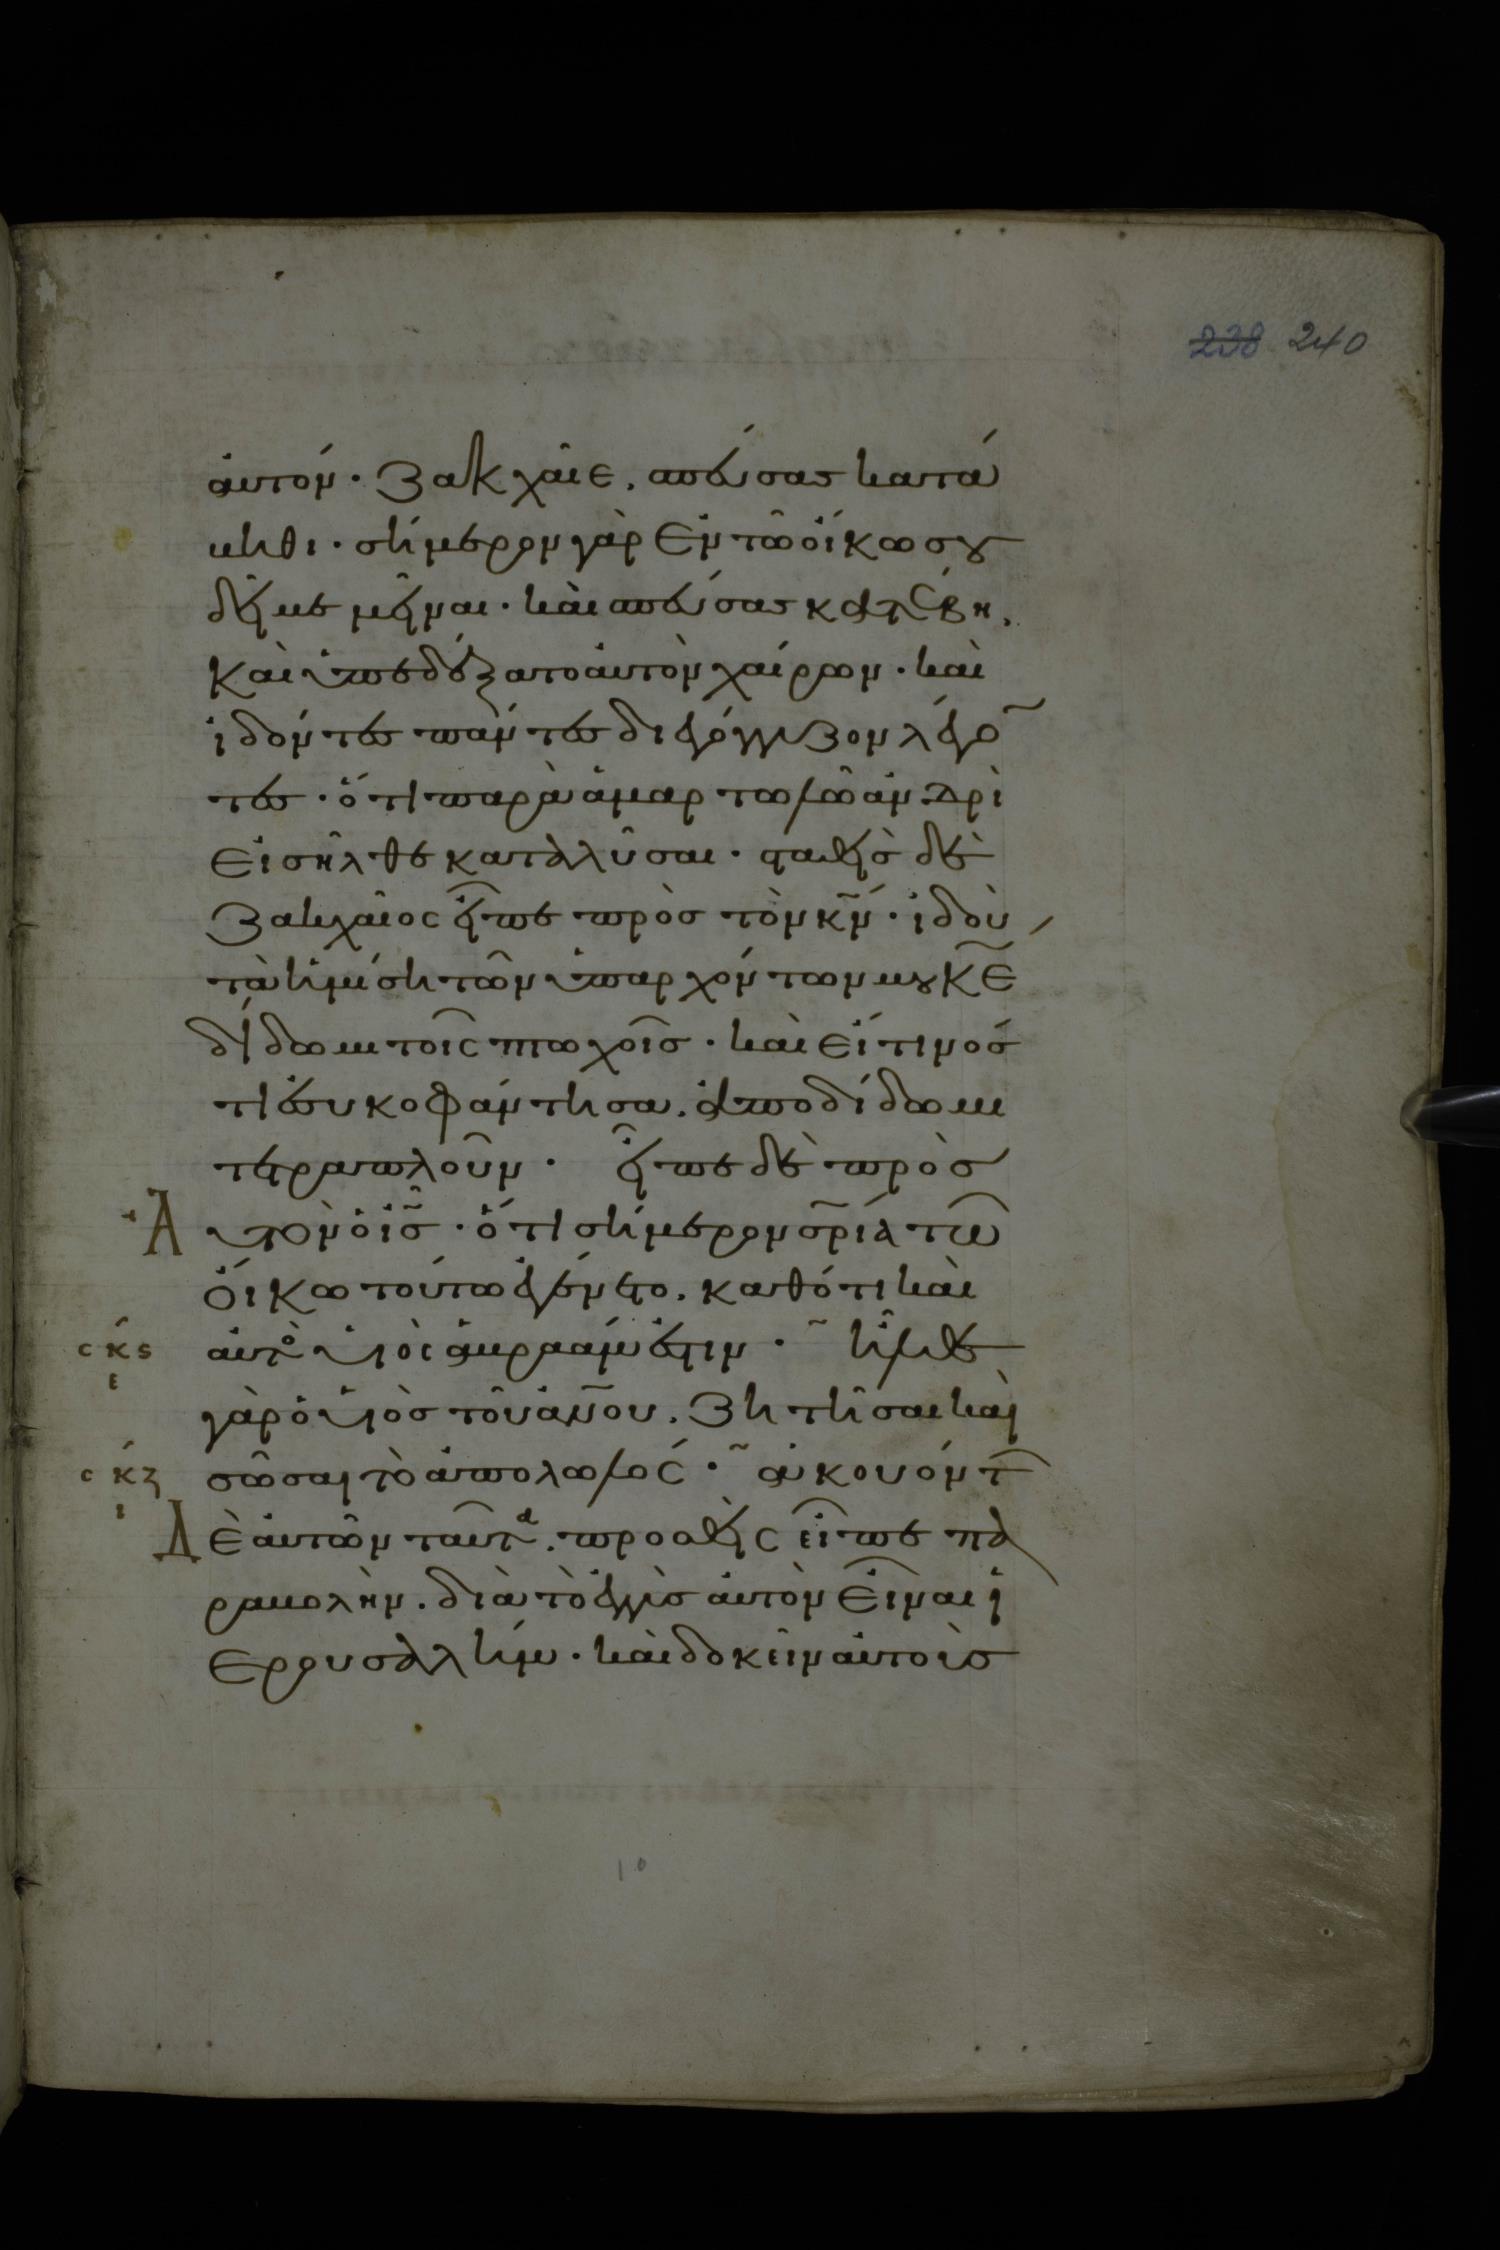 238 240
αυτόν · Ζακχαῖε, σπεύσας κατά
βηθι · σήμερον γὰρ ἐν τῶ οἴκω σου
δεῖ με μεῖναι · καὶ σπεύσας κατέβη,
καὶ ὑπεδέξατο αὐτὸν χαίρων · καὶ
ἰδόντες πάντες διεγόγγυζον λέγο̄
τες · ὅτι παρὰ ἁμαρτωλῶ ἀνδρὶ
εἰσῆλθε καταλῦσαι · σταθεὶς δὲ
Ζακχαῖος εἶπε πρὸς τὸν κ̅ν̅ · ἰδοὺ
τὰ ἡμίση τῶν ὑπαρχόντων μου κ̅ε̅
δίδωμι τοῖς πτωχοῖς · καὶ εἴ τινός
τι ἐσυκοφάντησα, ἀποδίδωμι
τετραπλοῦν · εἶπε δὲ πρὸς
Α αὐτὸν ὁ ι̅ς̅ · ὅτι σήμερον σ̅ρ̅ία τῶ
οἴκω τούτω ἐγένετο, καθότι καὶ
σκς αὐτὸς υἱὸς ἀβραάμ ἐστιν · ἦλθε
ι
γὰρ ὁ υἱὸς τοῦ ἀν̅ου, ζητῆσαι καὶ
σκζ σῶσαι τὸ ἀπολωλός · ἀκουόντ
ι
Δ ὲ αὐτῶν ταῦτα, προσθεὶς εἶπε πα
ραβολὴν, διὰ τὸ ἐγγὺς αὐτὸν εἶναι ἱ
ερουσαλήμ · καὶ δοκεῖν αὐτοὺς
10